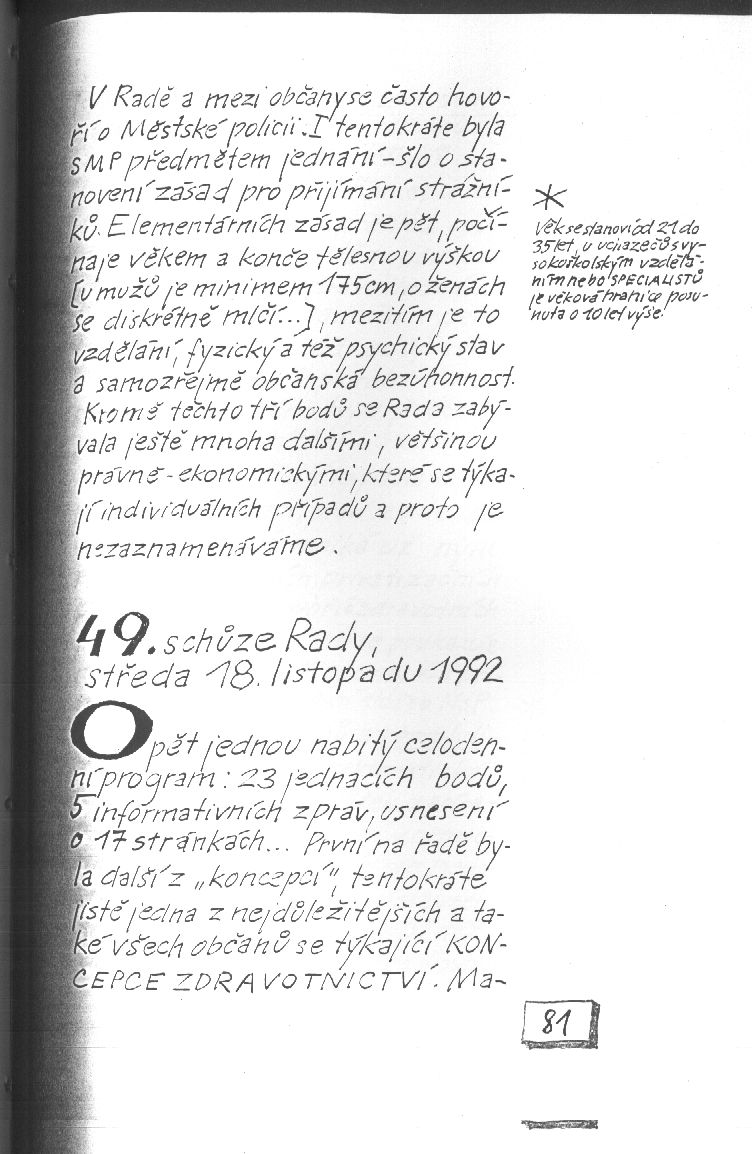 V Radě a mezi občany se často hovo-
ří o Městské policii. I tentokráte byla
SMP předmětem jednání – šlo o sta-
novení zásad pro přijímání strážní-
ků. Elementárních zásad je pět, počí-
naje věkem a konče tělesnou výškou
[u mužů je minimem 175cm, o ženách
se diskrétně mlčí...], mezitím je to
vzdělání, fyzický a též psychický stav
a samozřejmě občanská bezúhonnost.
Kromě těchto tří bodů se Rada zabý-
vala ještě mnoha dalšími, většinou
právně-ekonomickými, které se týka-
jí individuálních případů a proto je
nezaznamenáváme.
*
Věk se stanoví od 21 do
35 let, u uchazečů s vy-
sokoškolským vzdělá-
ním nebo SPECIALISTŮ
je věková hranice posu-
nuta o 10 let výše!
49. schůze Rady,
středa 18. listopadu 1992
Opět jednou nabitý celoden-
ní program: 23 jednacích bodů,
5 informativních zpráv, usnesení
o 17 stránkách... První na řadě by-
la další z „koncepcí", tentokráte
jistě jedna z nejdůležitějších a ta-
ké všech občanů se týkající KON-
CEPCE ZDRAVOTNICTVÍ. Ma-
81